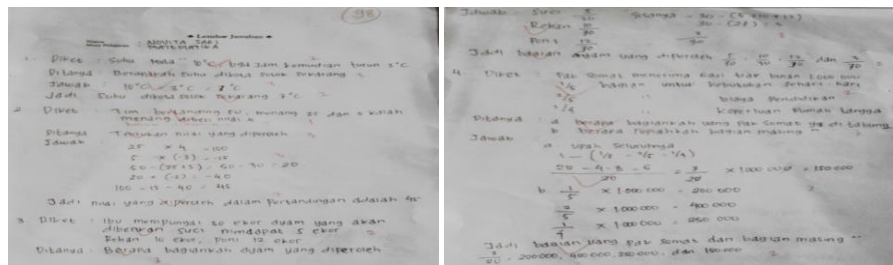 98
Lembar Jawaban
Nama : NOVITA SARI
Mata Pelajaran : MATEMATIKA
1. Diket : Suhu kota 10°C tiga jam kemudian turun 3°C
Ditanya : Berapakah suhu dikota Solok sekarang
Jawab : 10°C - 3°C = 7°C
Jadi suhu dikota Solok sekarang 7°C
2. Diket : Tim bertanding 50, menang 25 dan 5 kalah
menang diberi nilai 4
Ditanya : Tentukan nilai yang diperoleh
Jawab :
25 × 4 = 100
5 × (-3) = -15
50 - (25 + 5) = 50 - 30 = 20
20 × (-2) = -40
100 - 15 - 40 = 45
Jadi nilai yang diperoleh dalam pertandingan adalah 45
3. Diket : Ibu mempunyai 30 ekor ayam yang akan
diberikan Suci mendapat 5 ekor
Rehan 10 ekor, Poni 12 ekor
Ditanya : Berapa bagiankah ayam yang diperoleh
Jawab : Suci 5/30 Sisanya = 30 - (5 + 10 + 12)
Rehan 10/30 = 30 - (27) = 3
Poni 12/30 3/30
Jadi bagian ayam yang diperoleh 5/30, 10/30, 12/30 dan 3/30
4. Diket : Pak Somat menerima gaji tiap bulan 1.000.000
1/5 bagian untuk kebutuhan sehari-hari
2/5 biaya pendidikan
1/4 keperluan rumah tangga
Ditanya : a berapa bagiankah uang Pak Somat yg di tabung
b berapa rupiahkah bagian masing"
Jawab :
a upah seluruhnya
1 - (1/5 - 2/5 - 1/4)
20 - 4 - 8 - 5 / 20 = 3/20 × 1.000.000 = 150.000
b. 1/5 × 1.000.000 = 200.000
2/5 × 1.000.000 = 400.000
1/4 × 1.000.000 = 250.000
Jadi bagian uang Pak Somat dan bagian masing"
3/20, 200.000, 400.000, 250.000, dan 150.000